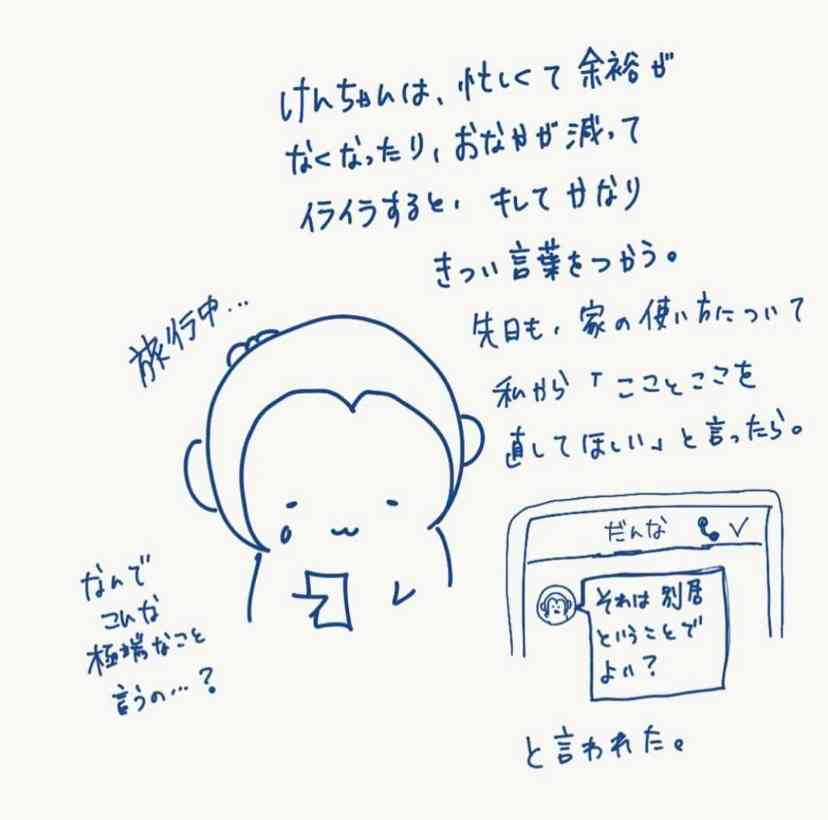 けんちゃんは、忙しくて余裕が
なくなったり、おなかが減って
イライラすると、キしてかなり
きつい言葉をつかう。
先日も、家の使い方について
私から「こことここを
直してほしい」と言ったら。
旅行中…
だんな
それは別居
ということで
よい?
なんで
こんな
極端なこと
言うの…?
と言われた。